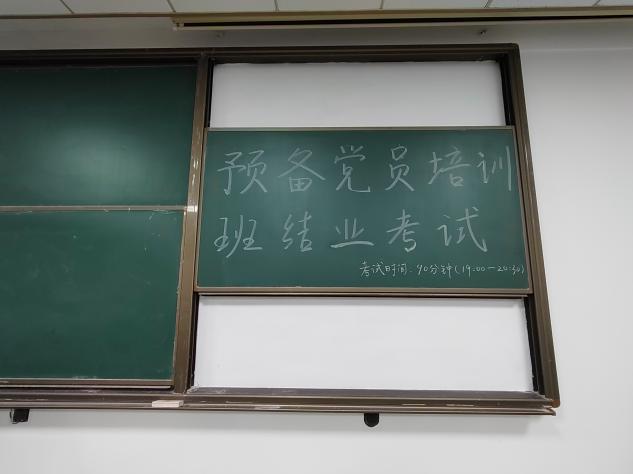 预备党员培训
班结业考试
考试时间:90分钟(19:00-20:30)